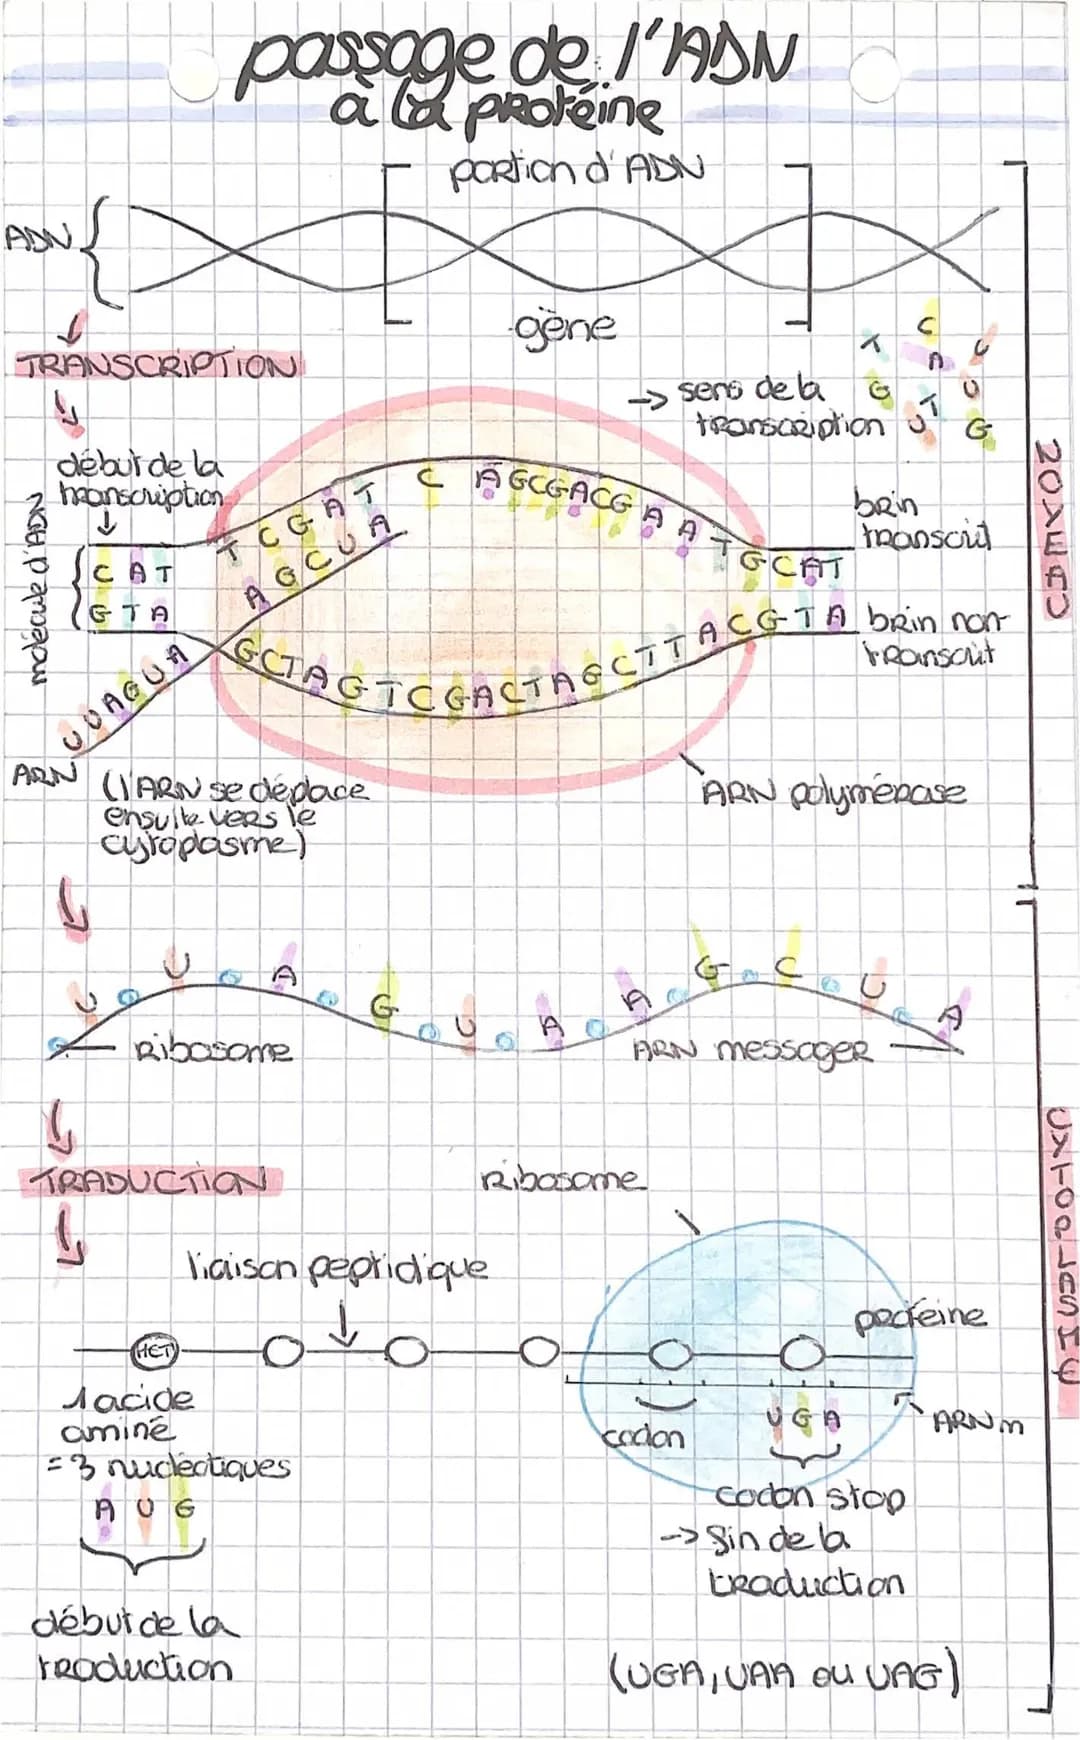 passage de l'ADN
à la protéine
portion d'ADN
ADN
gène
TRANSCRIPTION
→ sens de la
transcription
T C A U G T U U G
NOYEAU
début de la
transcription
molécule d'ADN
C A T
G T A
T C G A T C A G C G A C G A A T G C A T
A G C U A
G C T A G T C G A C T A G C T T A C G T A
brin
transcrit
brin non-
transcrit
U U A G U A
ARN
(l'ARN se déplace
ensuite vers le
cytoplasme)
ARN polymérase
U U A G U A A G C U A
Ribosome
ARN messager
CYTOPLASME
TRADUCTION
Ribosome
liaison peptidique
protéine
MET
1 acide
aminé
= 3 nucléotiques
A U G
début de la
traduction
codon
U G A
ARNm
codon stop
-> fin de la
traduction
(UGA, UAA ou UAG)